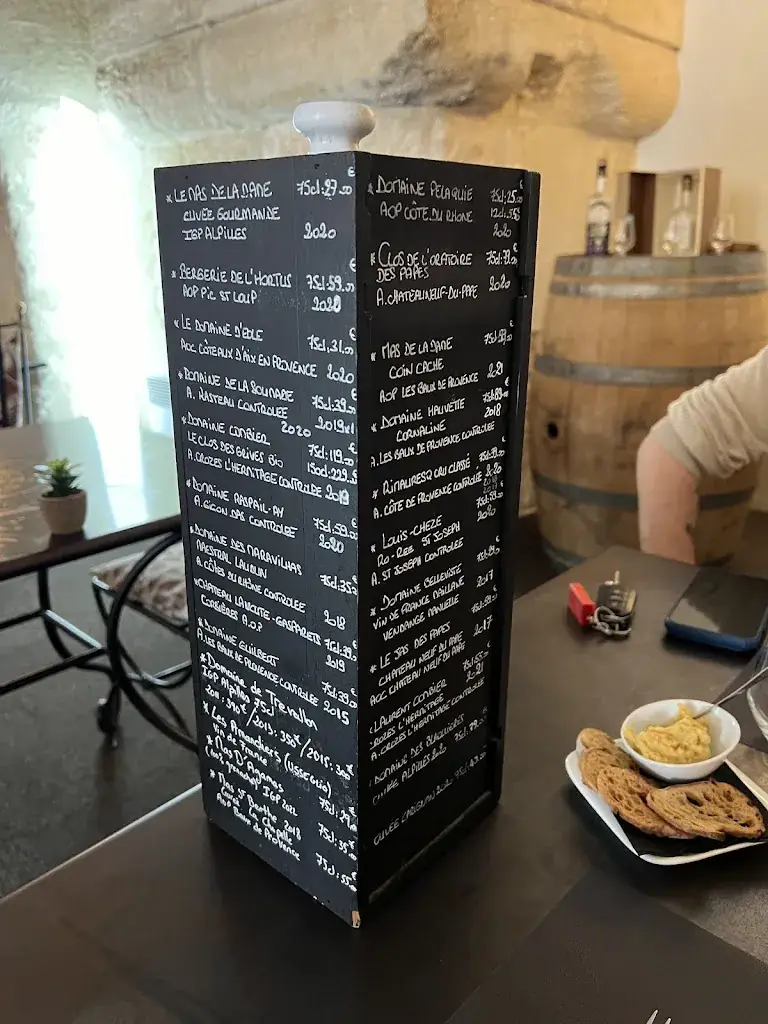 * LE MAS DE LA DAME 75cl: 27.00 €
CUVÉE GOURMANDE
IGP ALPILLES 2020
* BERGERIE DE L'HORTUS 75cl: 59.00 €
AOP PIC ST LOUP 2020
* LE DOMAINE D'EOLE 75cl: 31.00 €
AOC CÔTEAUX D'AIX EN PROVENCE 2020
* DOMAINE DE LA SOUMADE 75cl: 39.00 €
A. RASTEAU CONTROLÉE 2019
* DOMAINE COMBIER 2020 75cl: 119.00
LE CLOS DES GRIVES BIO 150cl: 229.
A. CROZES L'HERMITAGE CONTROLÉE 2019
* DOMAINE RASPAIL-AY 75cl: 59.00
A. GIGONDAS CONTROLÉE 2020
* DOMAINE DES MARAVILHAS 75cl: 35
MAESTRAL LAUDUN
A. CÔTES DU RHÔNE CONTROLÉE 2018
* CHATEAU LA VOULTE-GASPARETS 75cl: 39.
CORBIÈRES A.O.P 2019
* DOMAINE GUILBERT 75cl: 39.00
A. LES BAUX DE PROVENCE CONTROLÉE 2015
* Domaine de Trevallon
IGP Alpilles 75cl
2011: 390€ / 2013: 350€ / 2015: 300€
* Les Amandiers (USSEGLIO)
Vin de France 75cl: 29
* Mas D'Agamas
IGP 2022 75cl: 35
* Mas St Berthe 2018
Cuvée La Chapelle
AOP Baux de Provence 75cl: 55
* DOMAINE PELAQUIÉ 75cl: 25.00
AOP CÔTE DU RHÔNE
2020
* CLOS DE L'ORATOIRE 75cl: 79.00
DES PAPES 2020
A. CHATEAUNEUF-DU-PAPE
* MAS DE LA DAME 75cl: 59.00
COIN CACHÉ
AOP LES BAUX DE PROVENCE 2021
* DOMAINE HAUVETTE 2018
CORNALINE
A. LES BAUX DE PROVENCE CONTROLÉE
* RIMAURESQ CRU CLASSÉ 2020
A. CÔTE DE PROVENCE CONTROLÉE
* LOUIS-CHEZE 75cl: 59.00
RO-REE ST JOSEPH 2020
A. ST JOSEPH CONTROLÉE
* DOMAINE BELLEVISTE
VIN DE FRANCE PAILLANE 2017
VENDANGE MANUELLE
* LE JAS DES PAPES
CHATEAU NEUF DU PAPE 2017
AOC CHATEAU NEUF DU PAPE
LAURENT COMBIER 2021
CROZES L'HERMITAGE
A. CROZES L'HERMITAGE CONTROLÉE
DOMAINE DES
ALPILLES 2020
CUVÉE CARIGNAN 2020